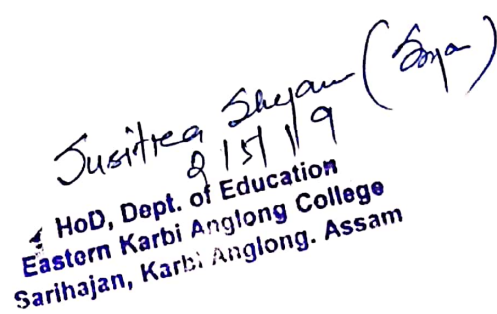 Susitrea Shyam (Soya)
2/5/19
HoD, Dept. of Education
Eastern Karbi Anglong College
Sarihajan, Karbi Anglong. Assam